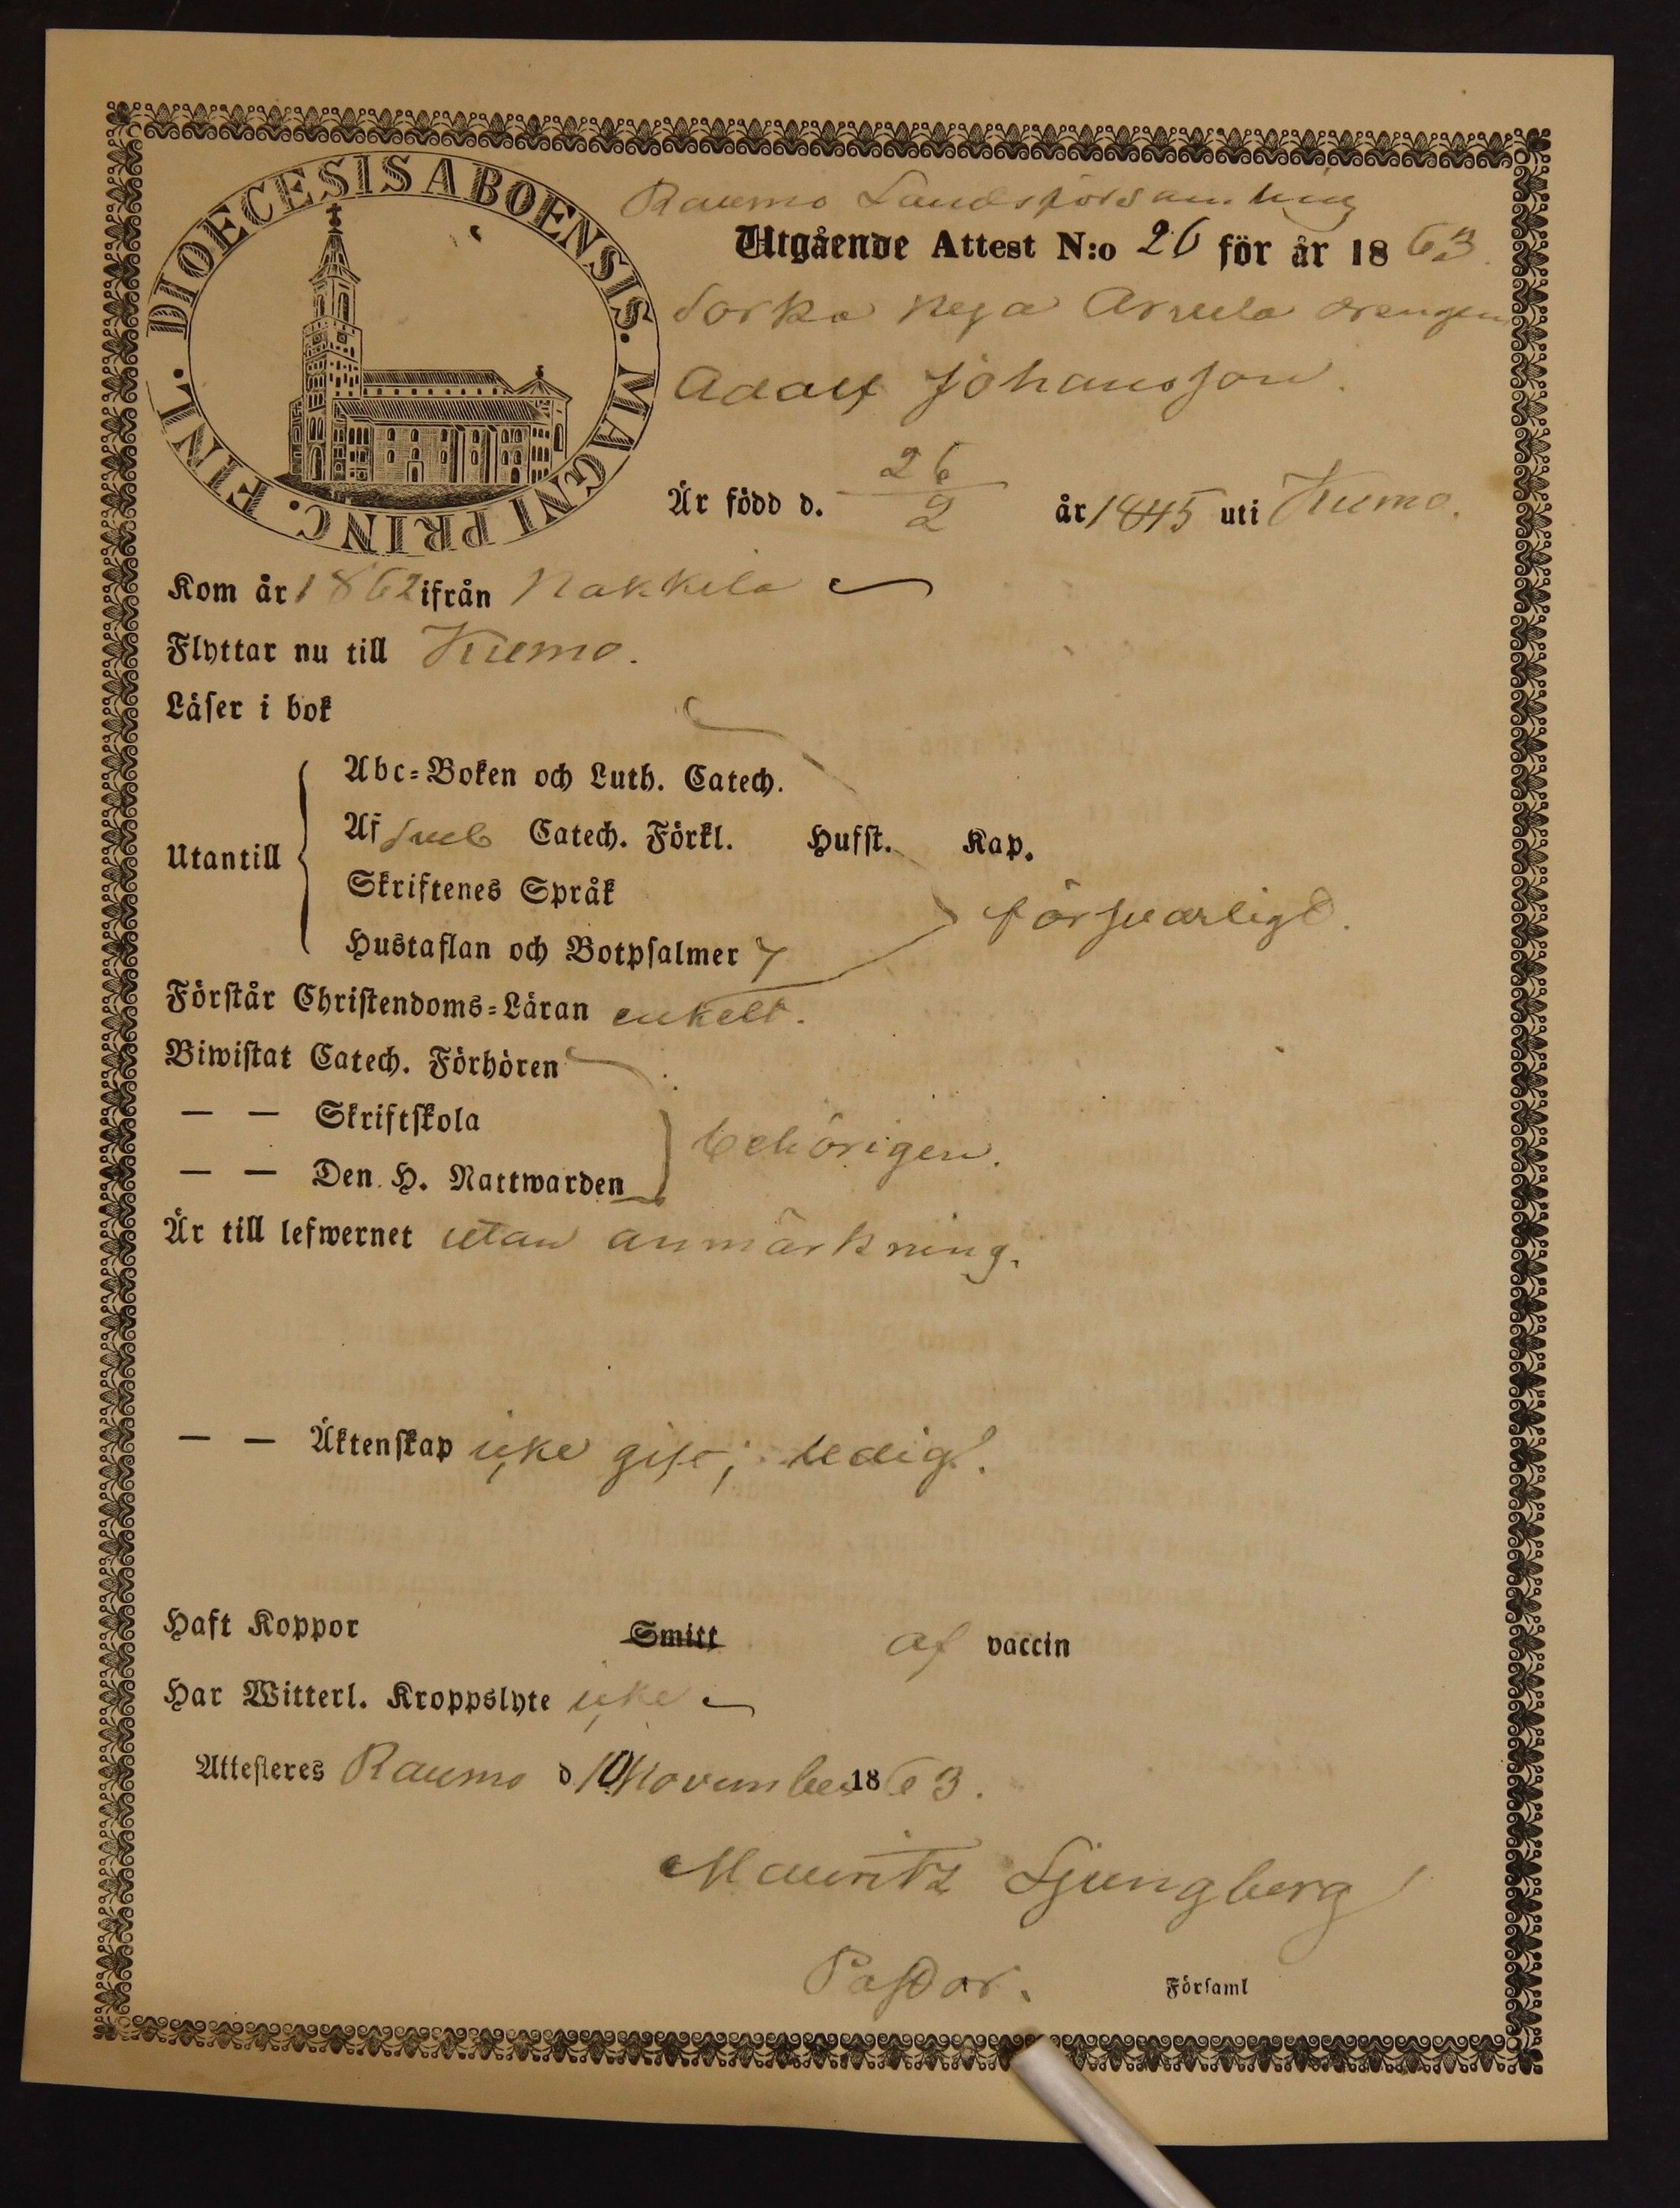 DIOECESIS ABOENSIS. MAGNI PRINC. FINL.
Raumo Landsförsamling
Utgående Attest N:o 26 för år 1863.
Sorka drengen
Adolf Johansson.
Är född d. 26/2 år 1845 uti Kumo.
Kom år 1862 ifrån Nakkila
Flyttar nu till Kumo.
Läser i bok
Utantill
Abc-Boken och Luth. Catech.
Af Sveb Catech. Förkl. Hufst. Kap.
Skriftenes Språk
Hustaflan och Botpsalmer 7
försvarligt.
Förstår Christendoms-Läran enkelt.
Biwistat Catech. Förhören
— — Skriftskola
— — Den H. Nattwarden
behörigen.
Är till lefwernet utan anmärkning.
— — Äktenskap icke gift; ledig.
Haft Koppor Smitt af vaccin
Har Witterl. Kroppslyte icke
Attesteres Raumo d 10 November 1863.
Mauritz Ljungberg
Pastor. Församl